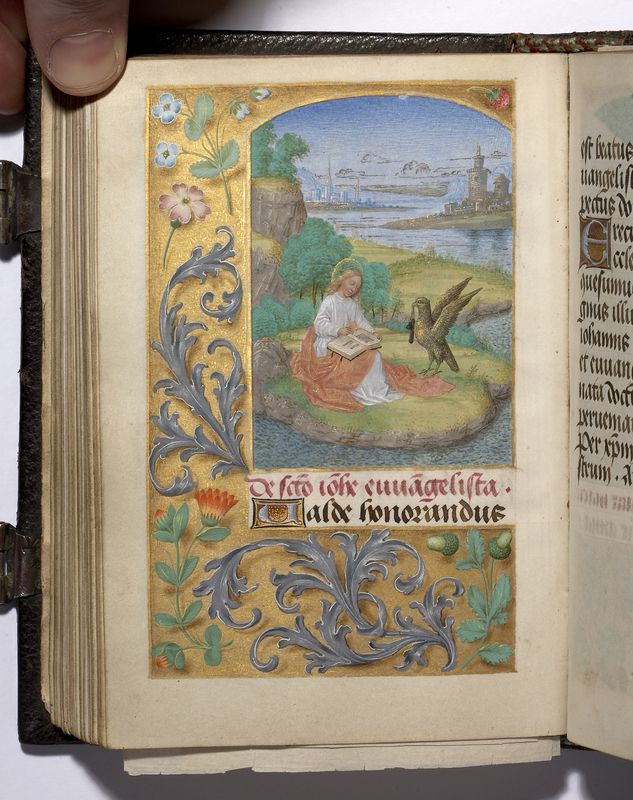 De scto iohe euuãgelista ·
Ualde honorandus
est beatus
uangelis
pectus do
recu
Eccle
quesumu
gnus illu
iohannis
et euuan
nata doct
peruenia
Per xpm
strum · A